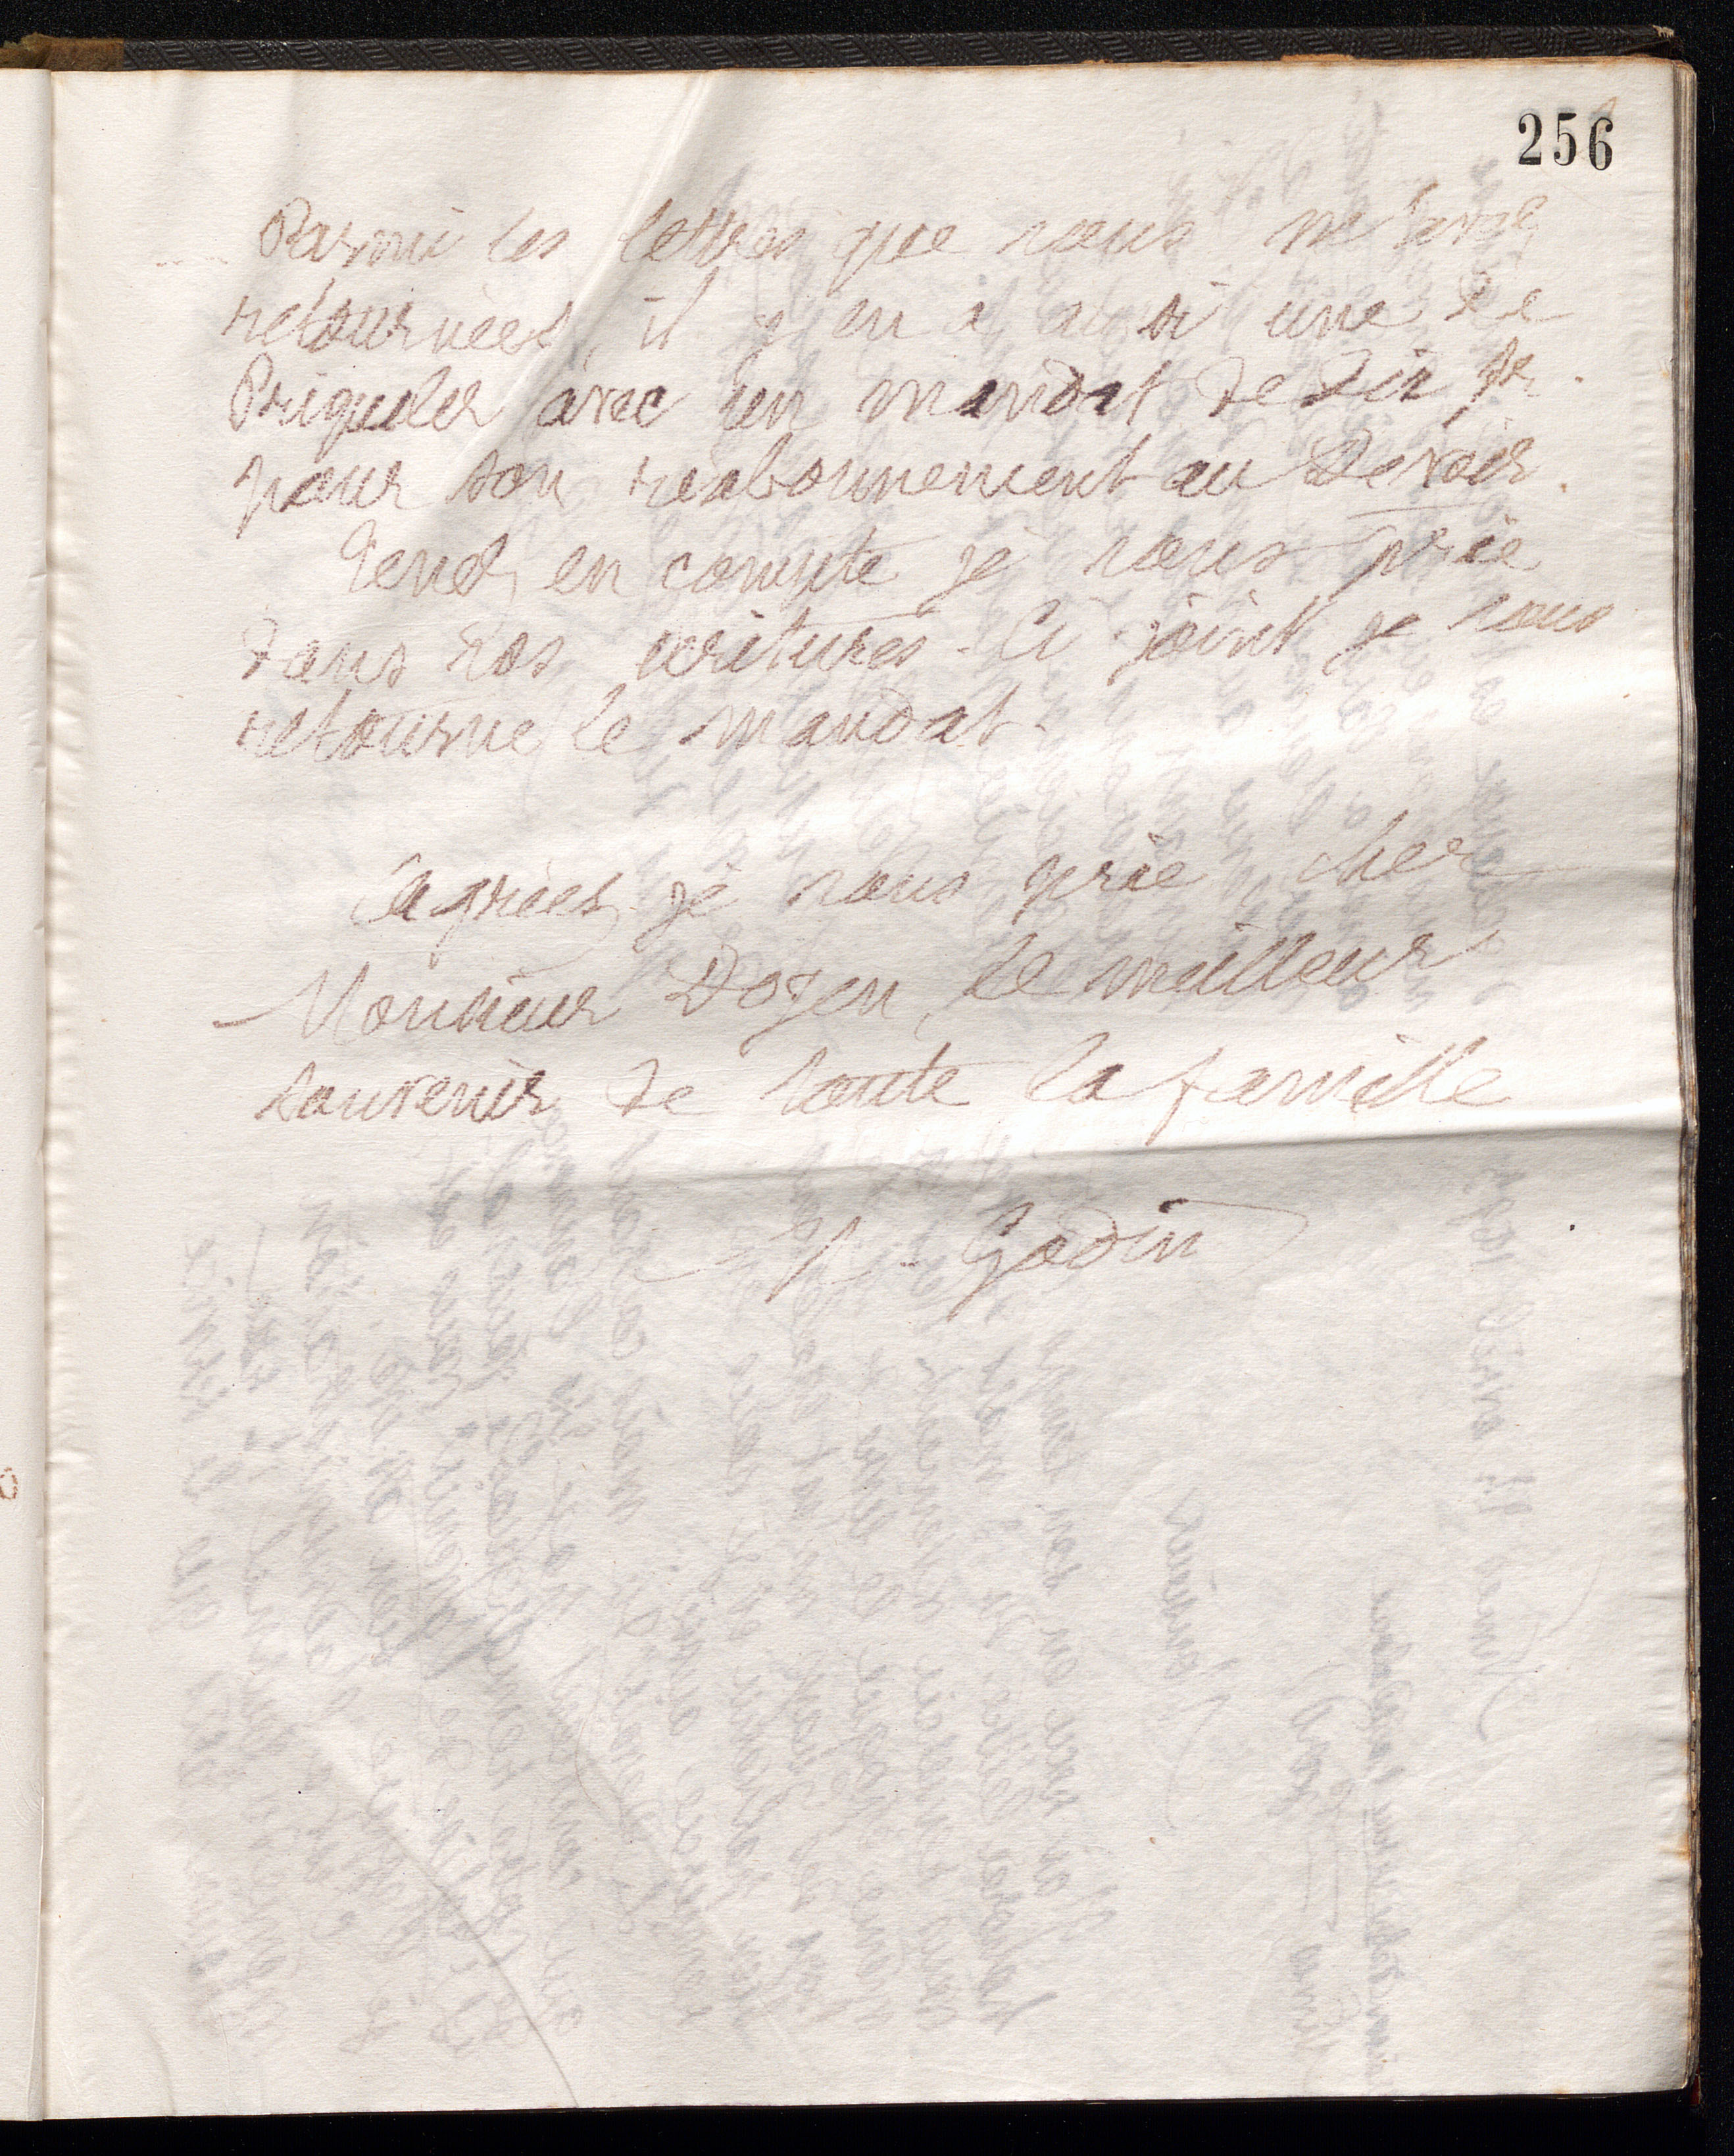 256
Parmi les lettres que vous m'avez
retournées, il y en a aussi une de
Priqueler avec un mandat de dix fr.
pour son réabonnement au Devoir.
Tenez en compte je vous prie
dans vos écritures. Ci-joint je vous
retourne le mandat.
Agréez je vous prie cher
Monsieur Doyen, le meilleur
souvenir de toute la famille
Godin